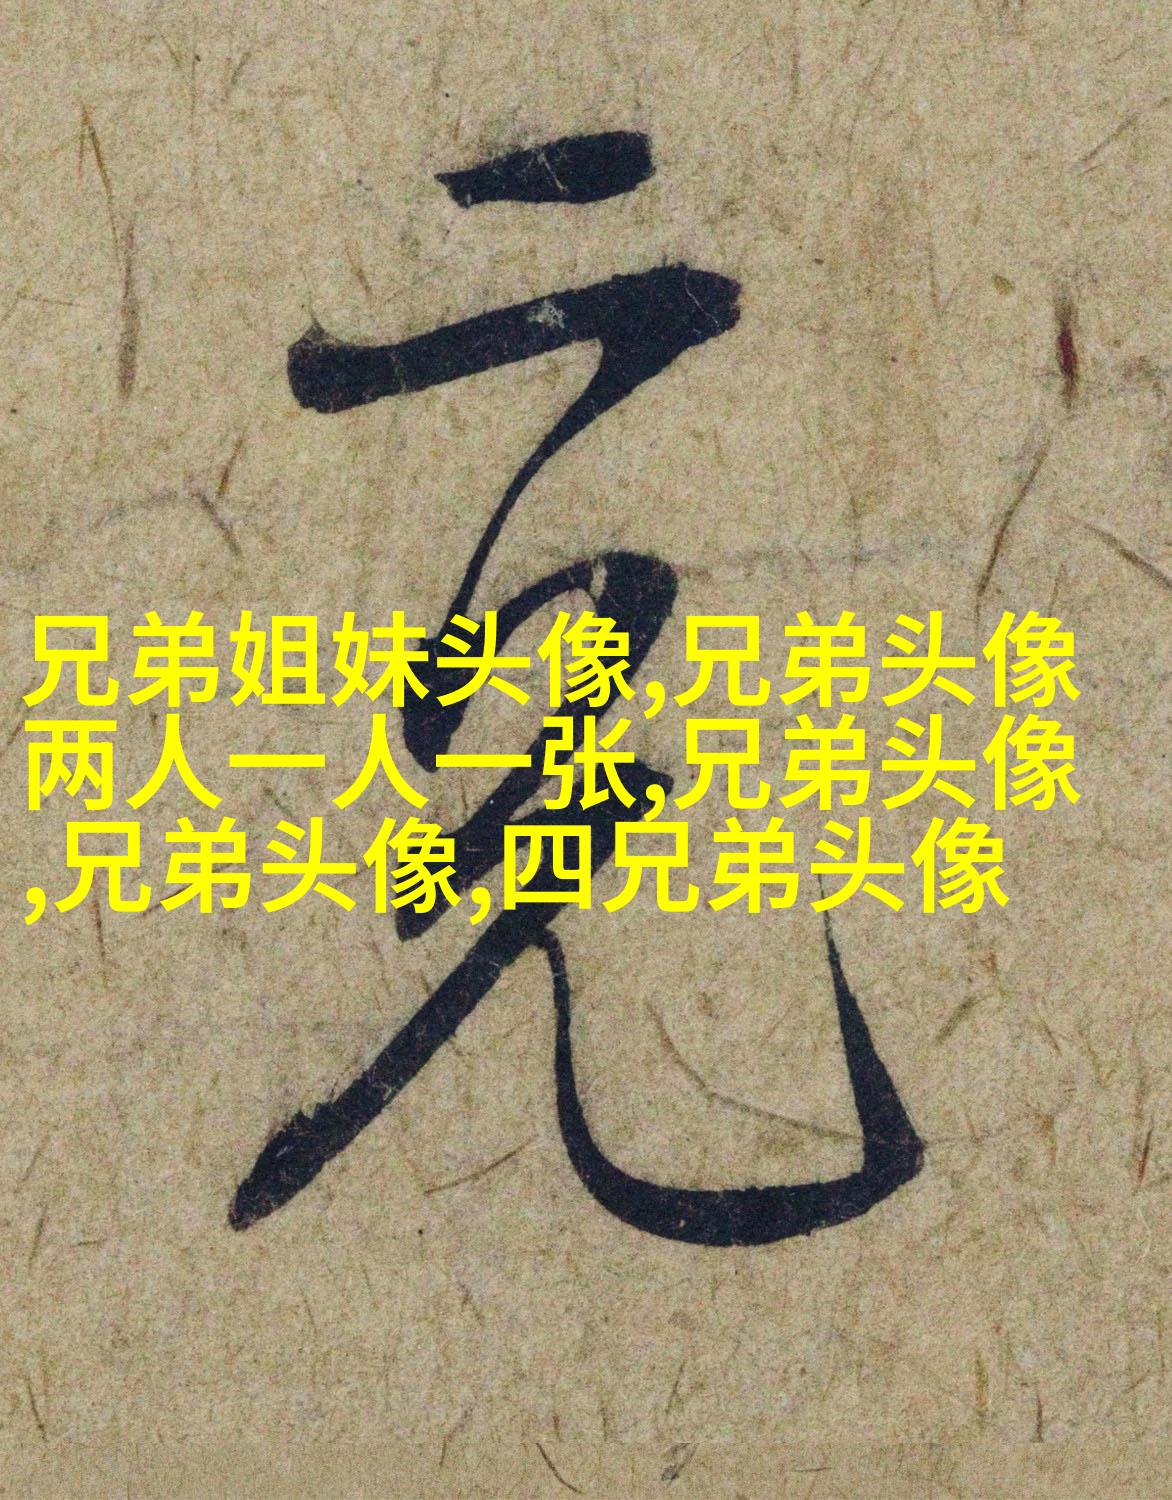 兄弟姐妹头像,兄弟头像
两人一人一张,兄弟头像
,兄弟头像,四兄弟头像